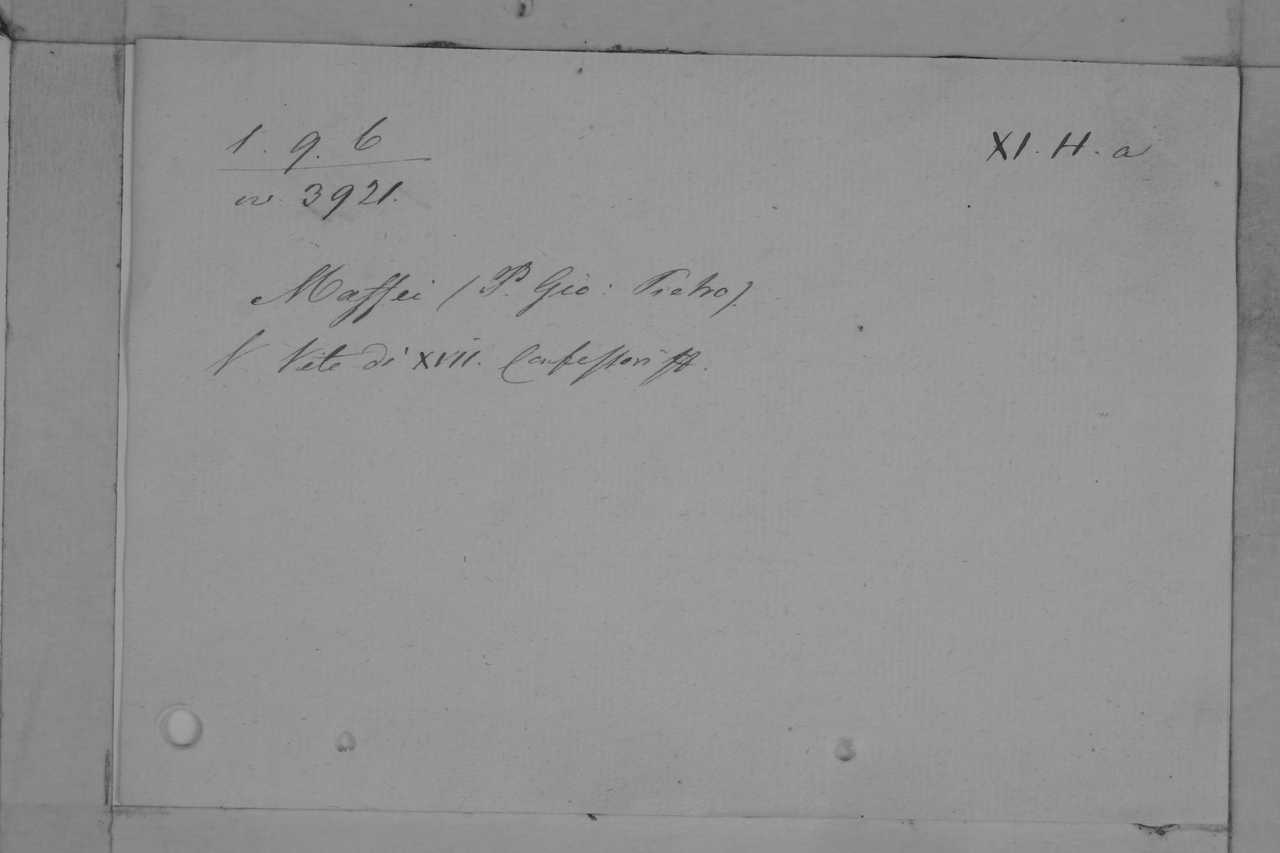 1. 9. 6
XI. H. a
nº 3921.
Maffei (P. Gio: Pietro).
Vite di XVII. Confessori